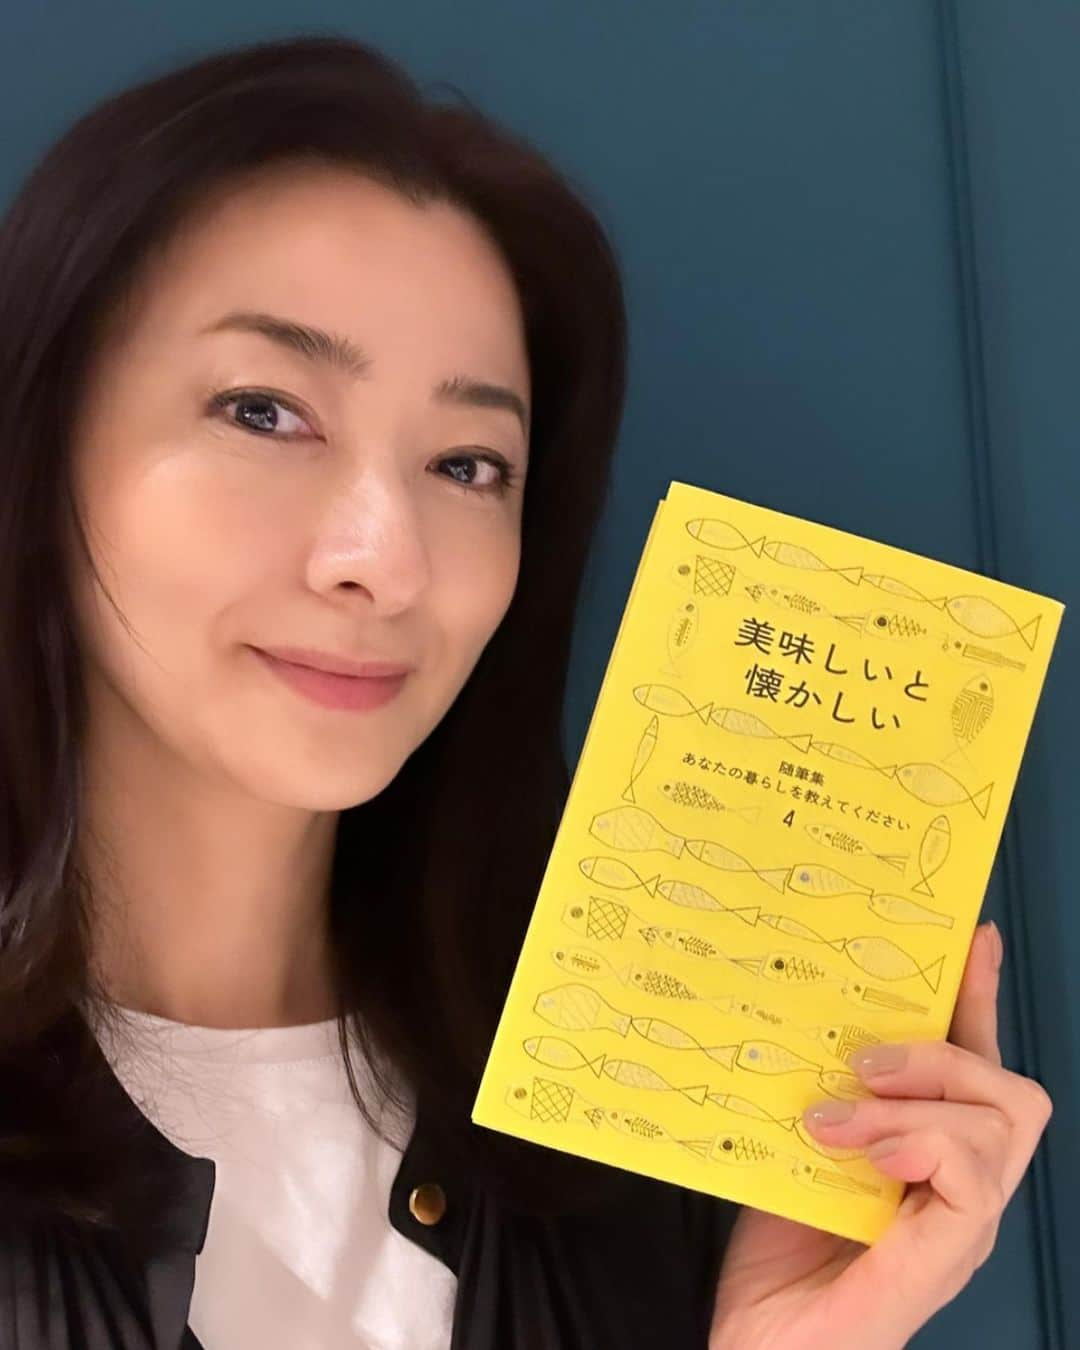 美味しいと
懐かしい
随筆集
あなたの暮らしを教えてください
4